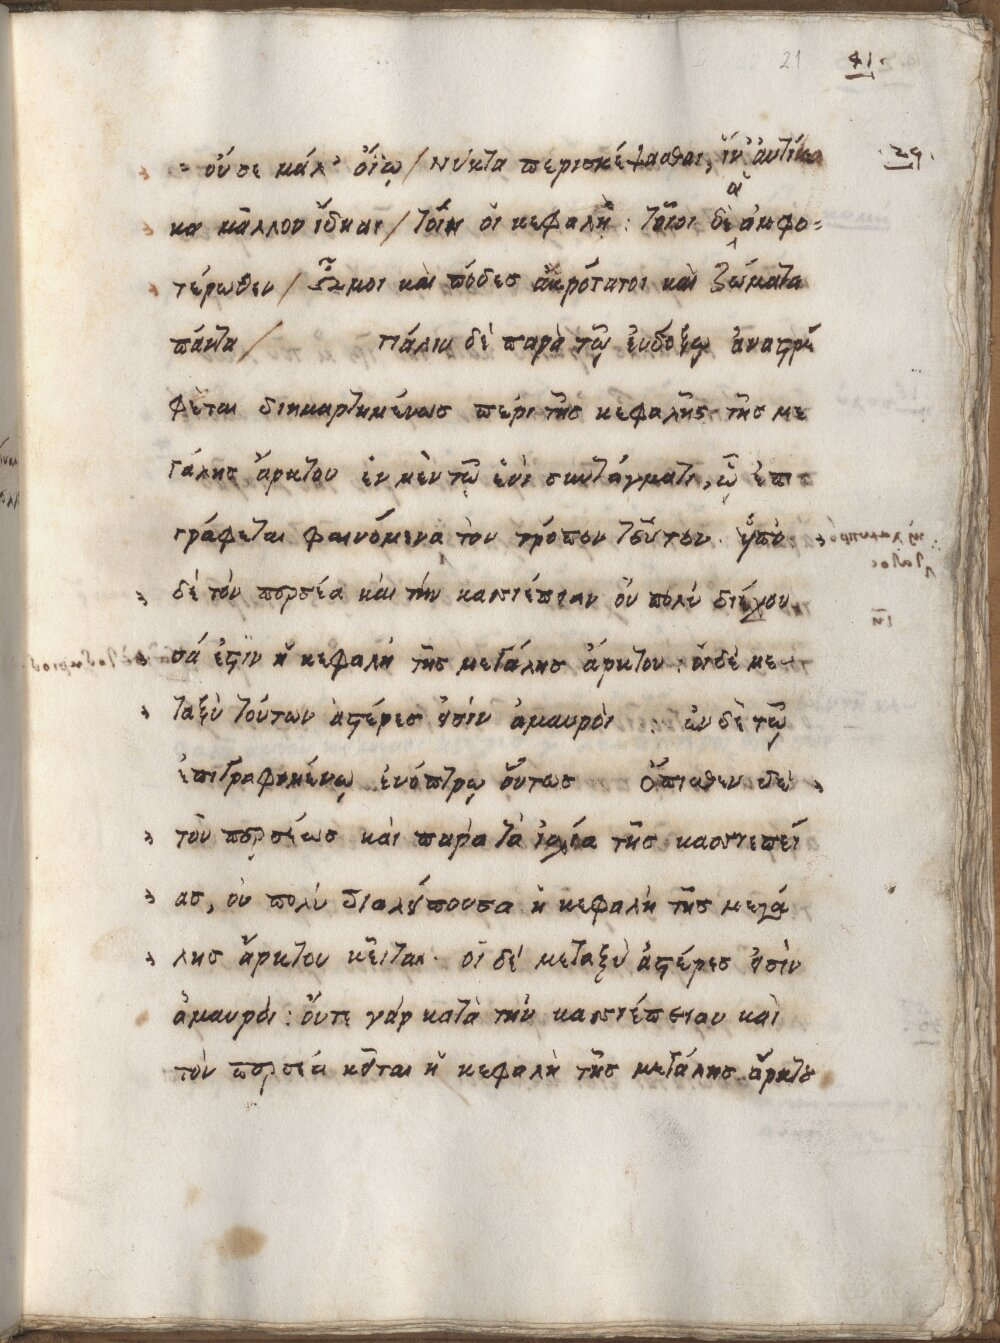 21 41.
οὔ σε μάλ' ὀΐω / νύκτα περισκέψασθαι, ἵν' αὐτίκα 29.
κα μᾶλλον ἴδηαι / τοίη οἱ κεφαλὴ : τοῖοι δὲ ἀμφο=
τέρωθεν / Ὦμοι καὶ πόδες ἀκρότατοι καὶ ζώματα
πάντα / πάλιν δὲ παρὰ τῷ ἐυδόξῳ ἀναγρά
φεται διημαρτημένως περὶ τῆς κεφαλῆς τῆς με
γάλης ἄρκτου ἐν μὲν τῷ ἑνὶ συντάγματι, ᾧ ἐπι
γράφεται φαινόμενα τὸν τρόπον τοῦτον ὑπὸ
δὲ τὸν περσέα καὶ τὴν κασσιέπειαν οὐ πολὺ διέχου
σά ἐστιν ἡ κεφαλὴ τῆς μεγάλης ἄρκτου : οἱ δὲ με
ταξὺ τούτων ἀστέρες εἰσὶν ἀμαυροί : ἐν δὲ τῷ
ἐπιγραφομένῳ ἐνόπτρῳ οὕτως ὄπισθεν δὲ
τοῦ περσέως καὶ παρὰ τὰ ἰσχία τῆς κασσιεπεί
ας, οὐ πολὺ διαλείπουσα ἡ κεφαλὴ τῆς μεγά
λης ἄρκτου κεῖται. οἱ δὲ μεταξὺ ἀστέρες εἰσὶν
ἀμαυροί : οὔτε γὰρ κατὰ τὴν κασσιέπειαν καὶ
τὸν περσέα κεῖται ἡ κεφαλὴ τῆς μεγάλης ἄρκτου